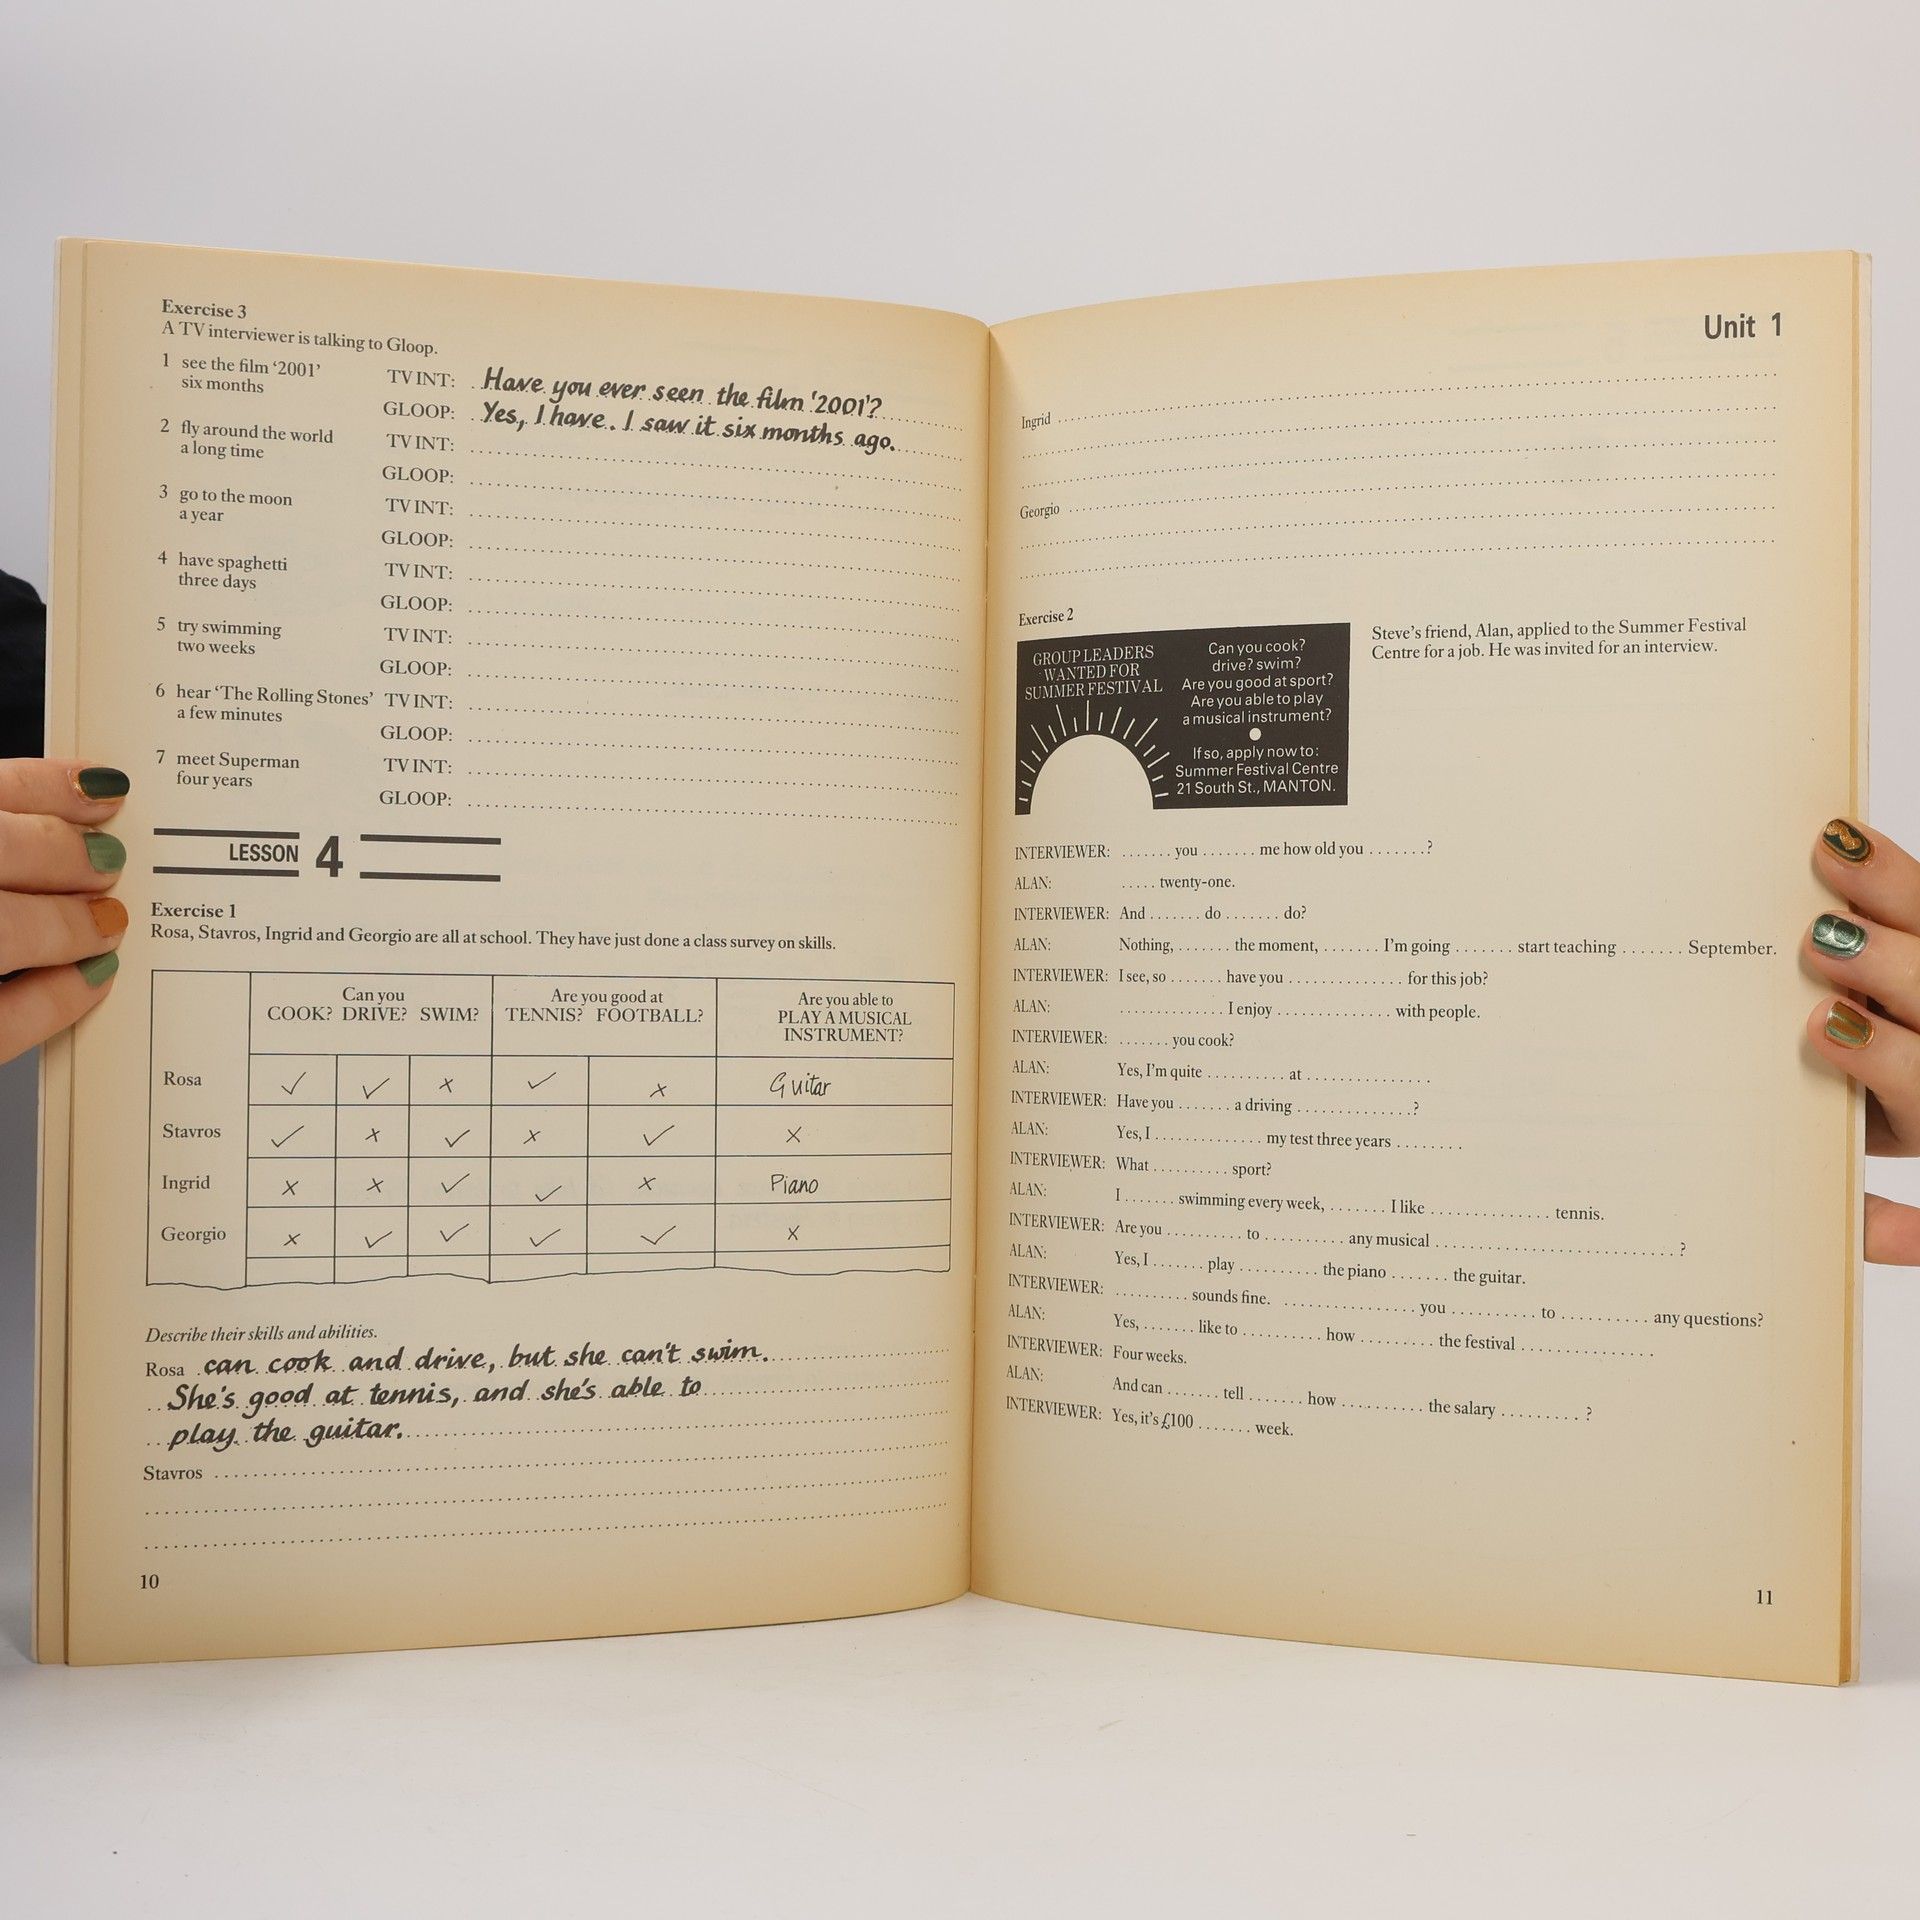 Exercise 3
A TV interviewer is talking to Gloop.
1 see the film ‘2001’
six months
TV INT: Have you ever seen the film '2001'?
GLOOP: Yes, I have. I saw it six months ago.
2 fly around the world
a long time
TV INT:
GLOOP:
3 go to the moon
a year
TV INT:
GLOOP:
4 have spaghetti
three days
TV INT:
GLOOP:
5 try swimming
two weeks
TV INT:
GLOOP:
6 hear ‘The Rolling Stones’
a few minutes
TV INT:
GLOOP:
7 meet Superman
four years
TV INT:
GLOOP:
LESSON 4
Exercise 1
Rosa, Stavros, Ingrid and Georgio are all at school. They have just done a class survey on skills.
Can you
COOK? DRIVE? SWIM?
Are you good at
TENNIS? FOOTBALL?
Are you able to
PLAY A MUSICAL
INSTRUMENT?
Rosa ✓ ✓ x ✓ x Guitar
Stavros ✓ x ✓ x ✓ x
Ingrid x x ✓ ✓ x Piano
Georgio x ✓ ✓ ✓ ✓ x
Describe their skills and abilities.
Rosa can cook and drive, but she can't swim.
She's good at tennis, and she's able to
play the guitar.
Stavros
10
Unit 1
Ingrid
Georgio
Exercise 2
GROUP LEADERS
WANTED FOR
SUMMER FESTIVAL
Can you cook?
drive? swim?
Are you good at sport?
Are you able to play
a musical instrument?
If so, apply now to:
Summer Festival Centre
21 South St., MANTON.
Steve's friend, Alan, applied to the Summer Festival
Centre for a job. He was invited for an interview.
INTERVIEWER: ....... you ....... me how old you .......?
ALAN: ..... twenty-one.
INTERVIEWER: And ....... do ....... do?
ALAN: Nothing, ....... the moment, ....... I'm going ....... start teaching ....... September.
INTERVIEWER: I see, so ....... have you .............. for this job?
ALAN: .............. I enjoy .............. with people.
INTERVIEWER: ....... you cook?
ALAN: Yes, I'm quite .......... at ...............
INTERVIEWER: Have you ....... a driving ..............?
ALAN: Yes, I .............. my test three years ........
INTERVIEWER: What .......... sport?
ALAN: I ....... swimming every week, ....... I like .............. tennis.
INTERVIEWER: Are you .......... to .......... any musical .............................?
ALAN: Yes, I ....... play .......... the piano ....... the guitar.
INTERVIEWER: .......... sounds fine. ................ you .......... to .......... any questions?
ALAN: Yes, ....... like to .......... how .......... the festival ...............
INTERVIEWER: Four weeks.
ALAN: And can ....... tell ....... how .......... the salary .........?
INTERVIEWER: Yes, it's £100 ....... week.
11